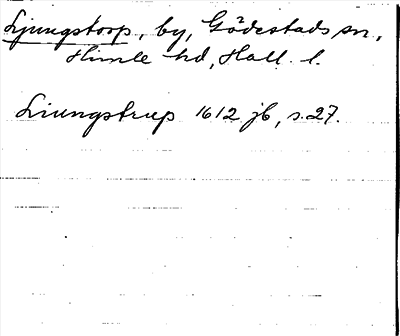 Ljungstorp, by, Gödestads sn,
Himle hd, Hall. l.
Liungstrup 1612 jb, s. 27.